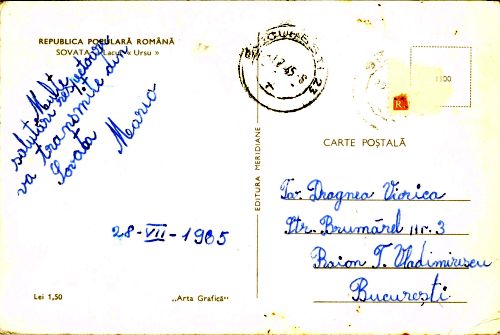 REPUBLICA POPULARĂ ROMÂNĂ
SOVATA - Lacul « Ursu »
Multe
salutări respectuoase
va transmite din
Sovata
Maria
28-VII-1965
Lei 1,50
„Arta Grafică“
EDITURA MERIDIANE
1300
R.
CARTE POȘTALĂ
Tov. Dragnea Viorica
Str. Brumărel nr. 3
Raion T. Vladimirescu
București